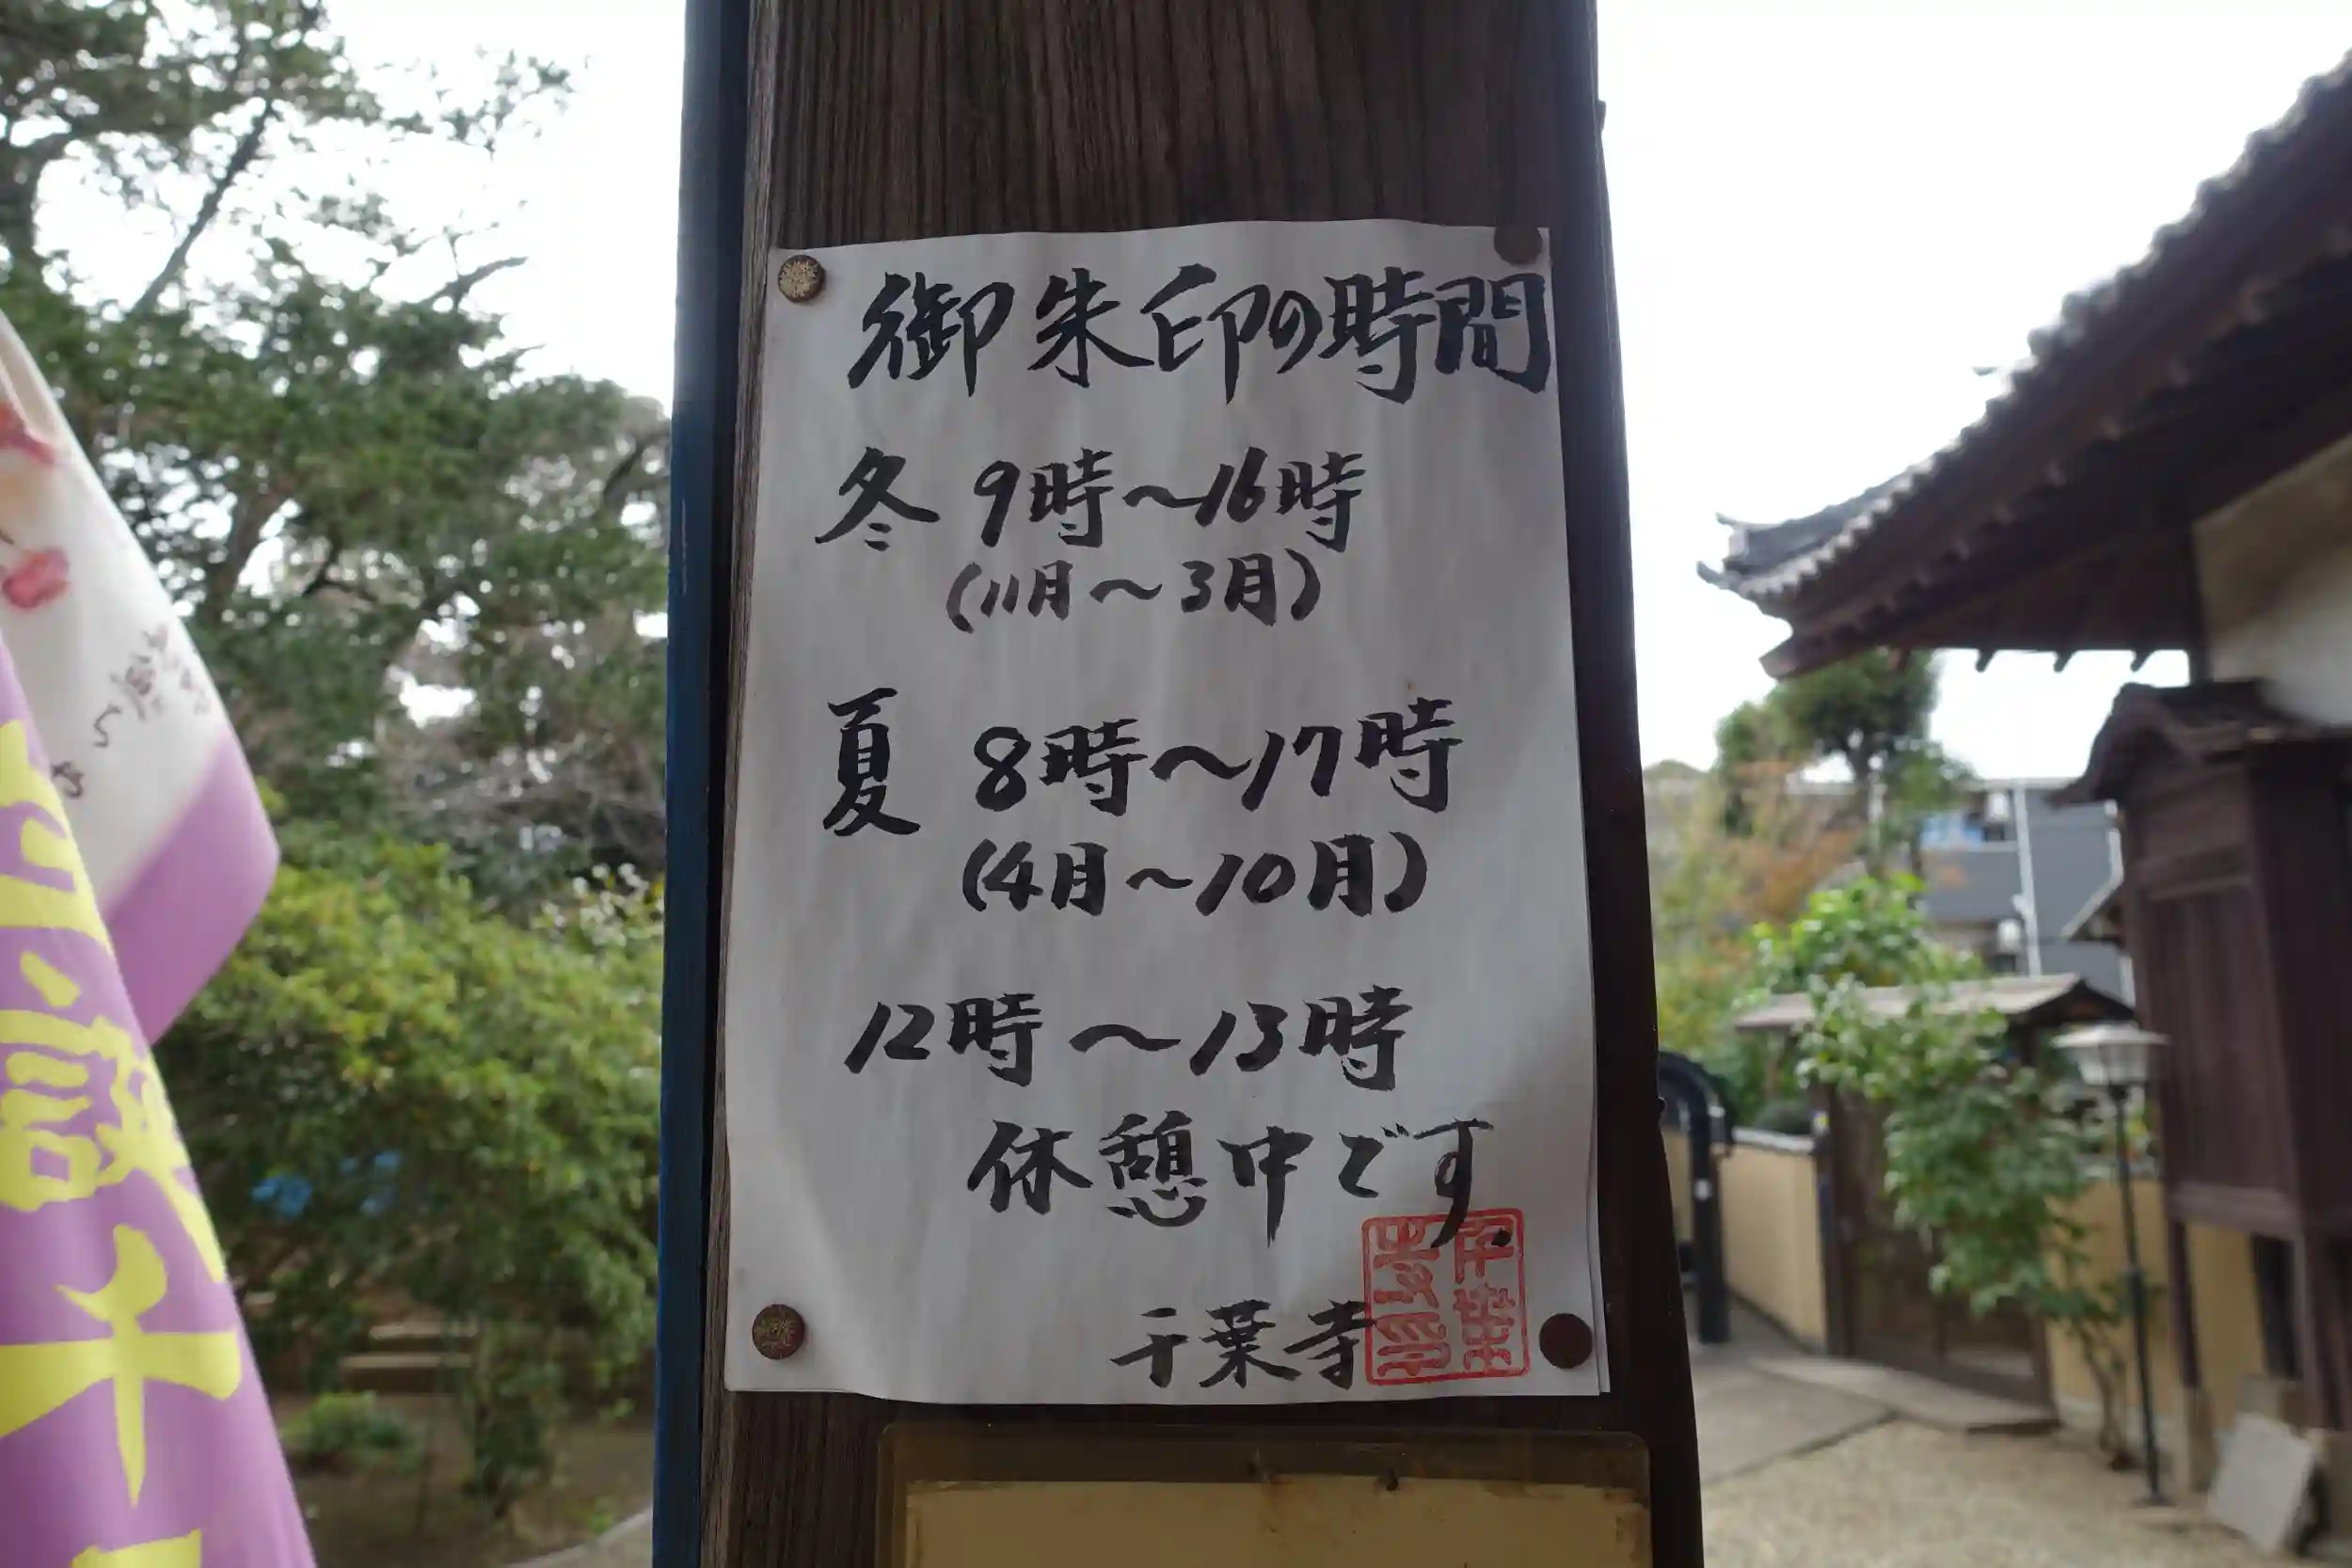 御朱印の時間
冬 9時〜16時
(11月〜3月)
夏 8時〜17時
(4月〜10月)
12時〜13時
休憩中です。
千葉寺
千